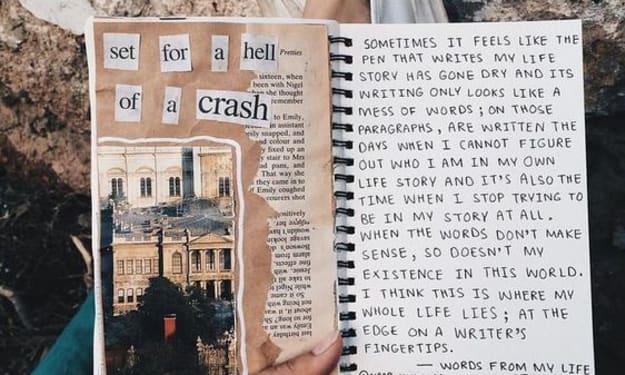 set for a hell
of a crash
Pretties
sixteen, when
been with Nigel
she thought
remember
to Emily,
in assistant
snapped, and
colour and
fixed up an
stair to Mrs
pans, and
That way she
they came in to
Emily coughed
SOMETIMES IT FEELS LIKE THE
PEN THAT WRITES MY LIFE
STORY HAS GONE DRY AND ITS
WRITING ONLY LOOKS LIKE A
MESS OF WORDS; ON THOSE
PARAGRAPHS, ARE WRITTEN THE
DAYS WHEN I CANNOT FIGURE
OUT WHO I AM IN MY OWN
LIFE STORY AND IT'S ALSO THE
TIME WHEN I STOP TRYING TO
BE IN MY STORY AT ALL.
WHEN THE WORDS DON'T MAKE
SENSE, SO DOESN'T MY
EXISTENCE IN THIS WORLD.
I THINK THIS IS WHERE MY
WHOLE LIFE LIES; AT THE
EDGE ON A WRITER'S
FINGERTIPS.
— WORDS FROM MY LIFE